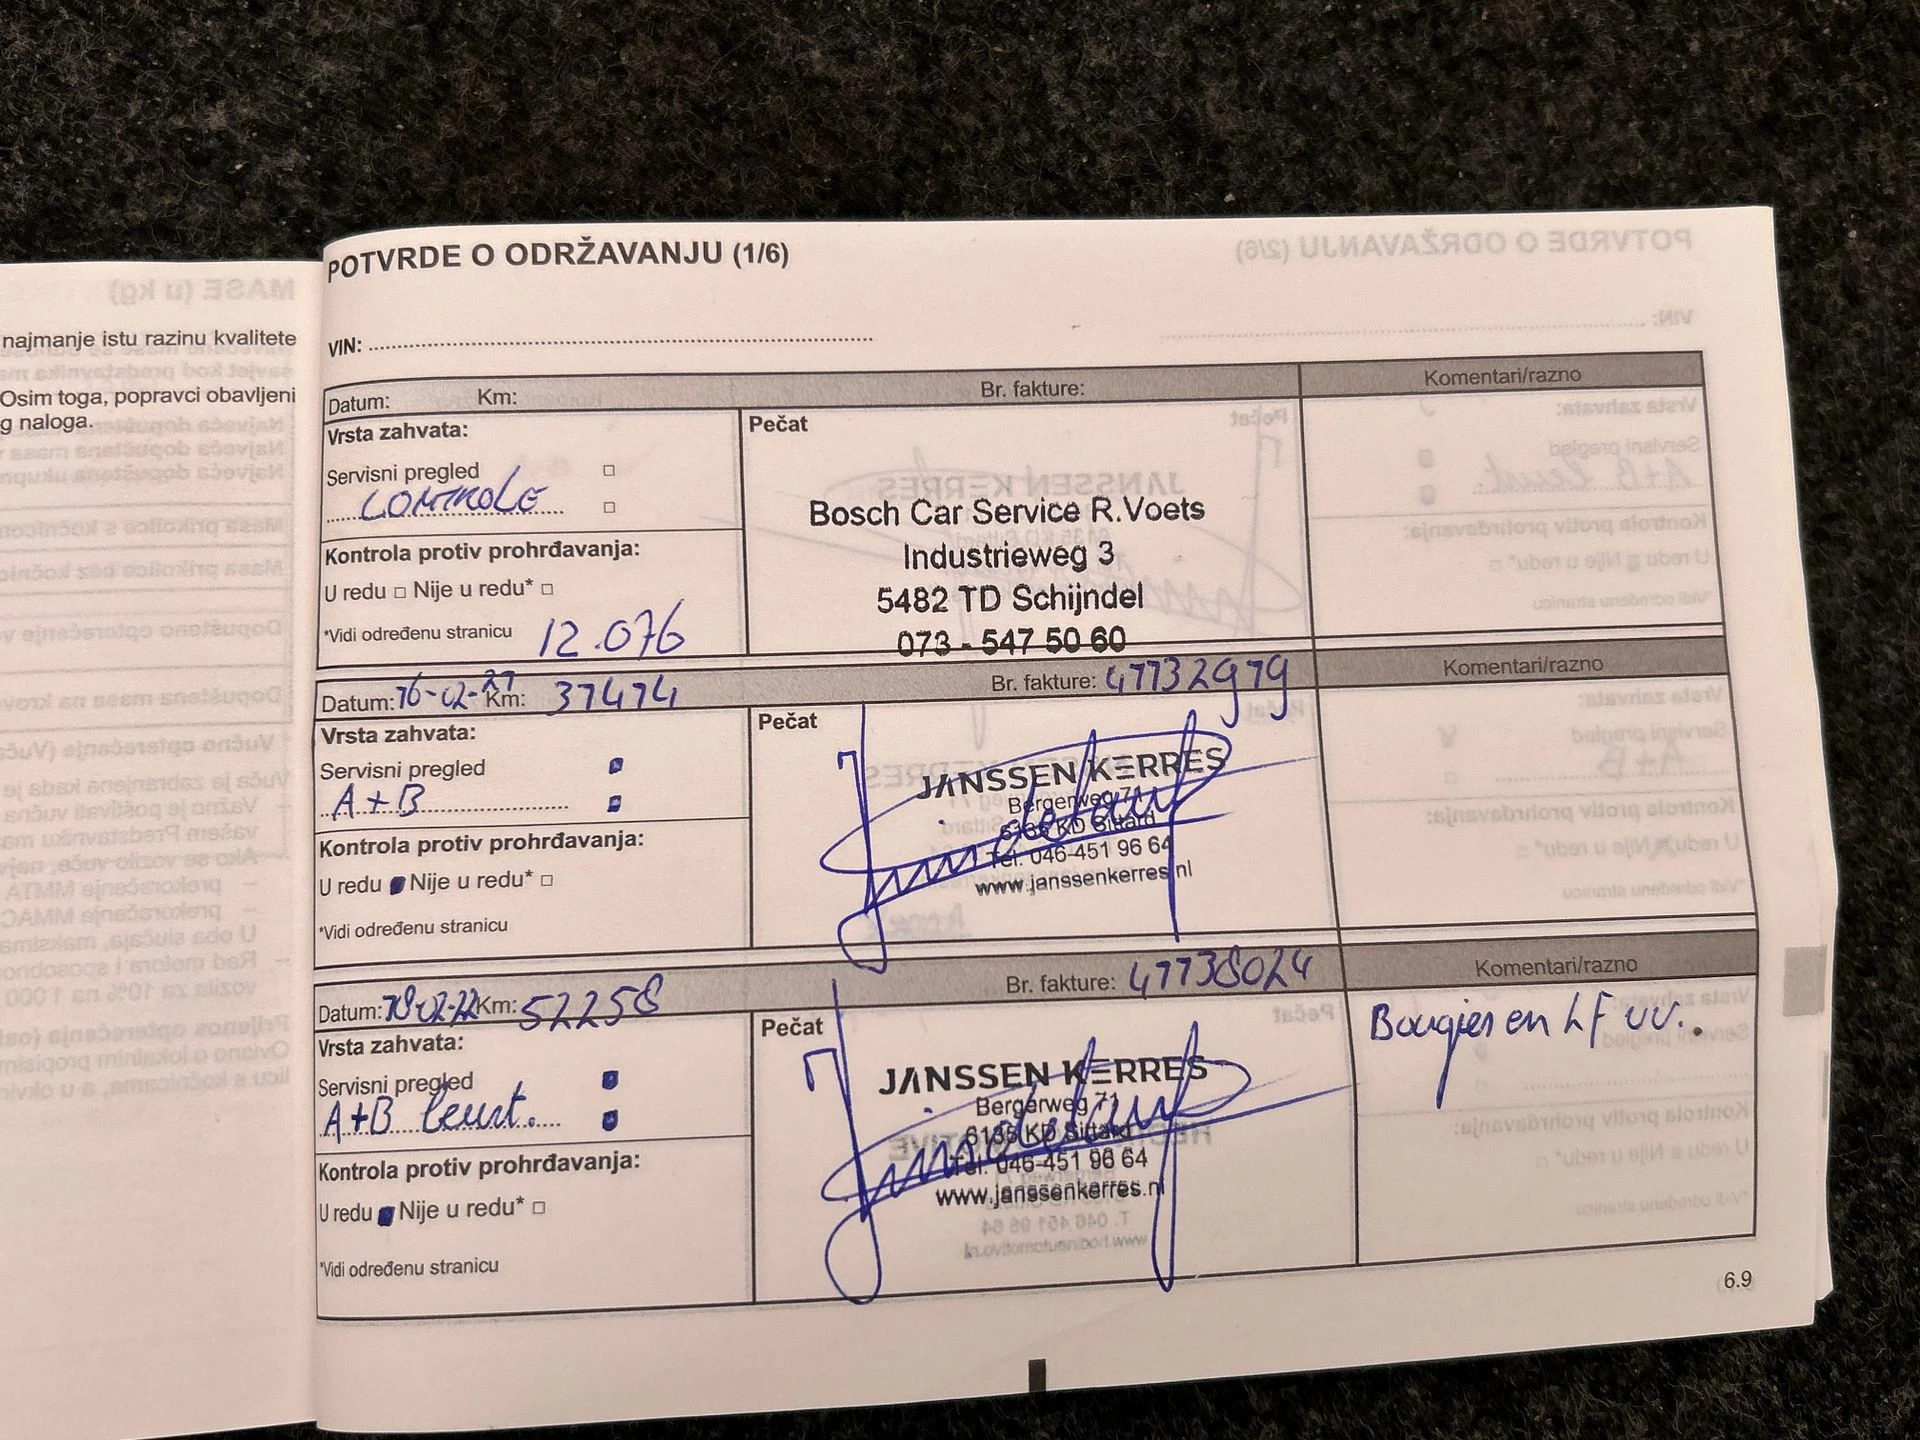 najmanje istu razinu kvalitete
Osim toga, popravci obavljeni
g naloga.
POTVRDE O ODRŽAVANJU (1/6)
VIN:
Datum: Km: Br. fakture: Komentari/razno
Vrsta zahvata:
Servisni pregled □
CONTROLE □
Kontrola protiv prohrđavanja:
U redu □ Nije u redu* □
*Vidi određenu stranicu 12.076
Pečat
Bosch Car Service R.Voets
Industrieweg 3
5482 TD Schijndel
073 - 547 50 60
Datum: 16-02-21 Km: 37474 Br. fakture: 47732979 Komentari/razno
Vrsta zahvata:
Servisni pregled
A+B
Kontrola protiv prohrđavanja:
U redu Nije u redu* □
*Vidi određenu stranicu
Pečat
JANSSEN KERRES
Bergerweg 71
6135 KD Sittard
Tel. 046-451 96 64
www.janssenkerres.nl
Datum: 18-02-22 Km: 52258 Br. fakture: 47738024 Komentari/razno
Vrsta zahvata:
Servisni pregled
A+B beurt.
Kontrola protiv prohrđavanja:
U redu Nije u redu* □
*Vidi određenu stranicu
Pečat
JANSSEN KERRES
Bergerweg 71
6135 KD Sittard
Tel. 046-451 96 64
www.janssenkerres.nl
Bougies en LF vv.
6.9